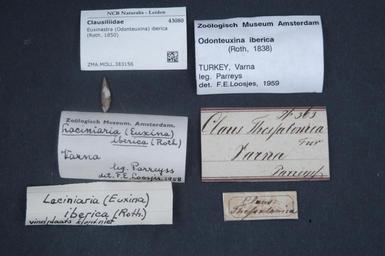 NCB Naturalis - Leiden
Clausiliidae 43080
Euxinastra (Odonteuxina) iberica
(Roth, 1850)
ZMA.MOLL.383156
Zoölogisch Museum Amsterdam
Odonteuxina iberica
(Roth, 1838)
TURKEY, Varna
leg. Parreys
det. F.E.Loosjes, 1959
Zoölogisch Museum. Amsterdam.
Laciniaria (Euxina)
iberica (Roth)
Varna
leg. Parreyss
det. F.E. Loosjes 1958
Claus Thessalonica
Varna
Parreyss
Laciniaria (Euxina)
iberica (Roth.)
vindplaats klopt niet
Claus.
Thessalonica